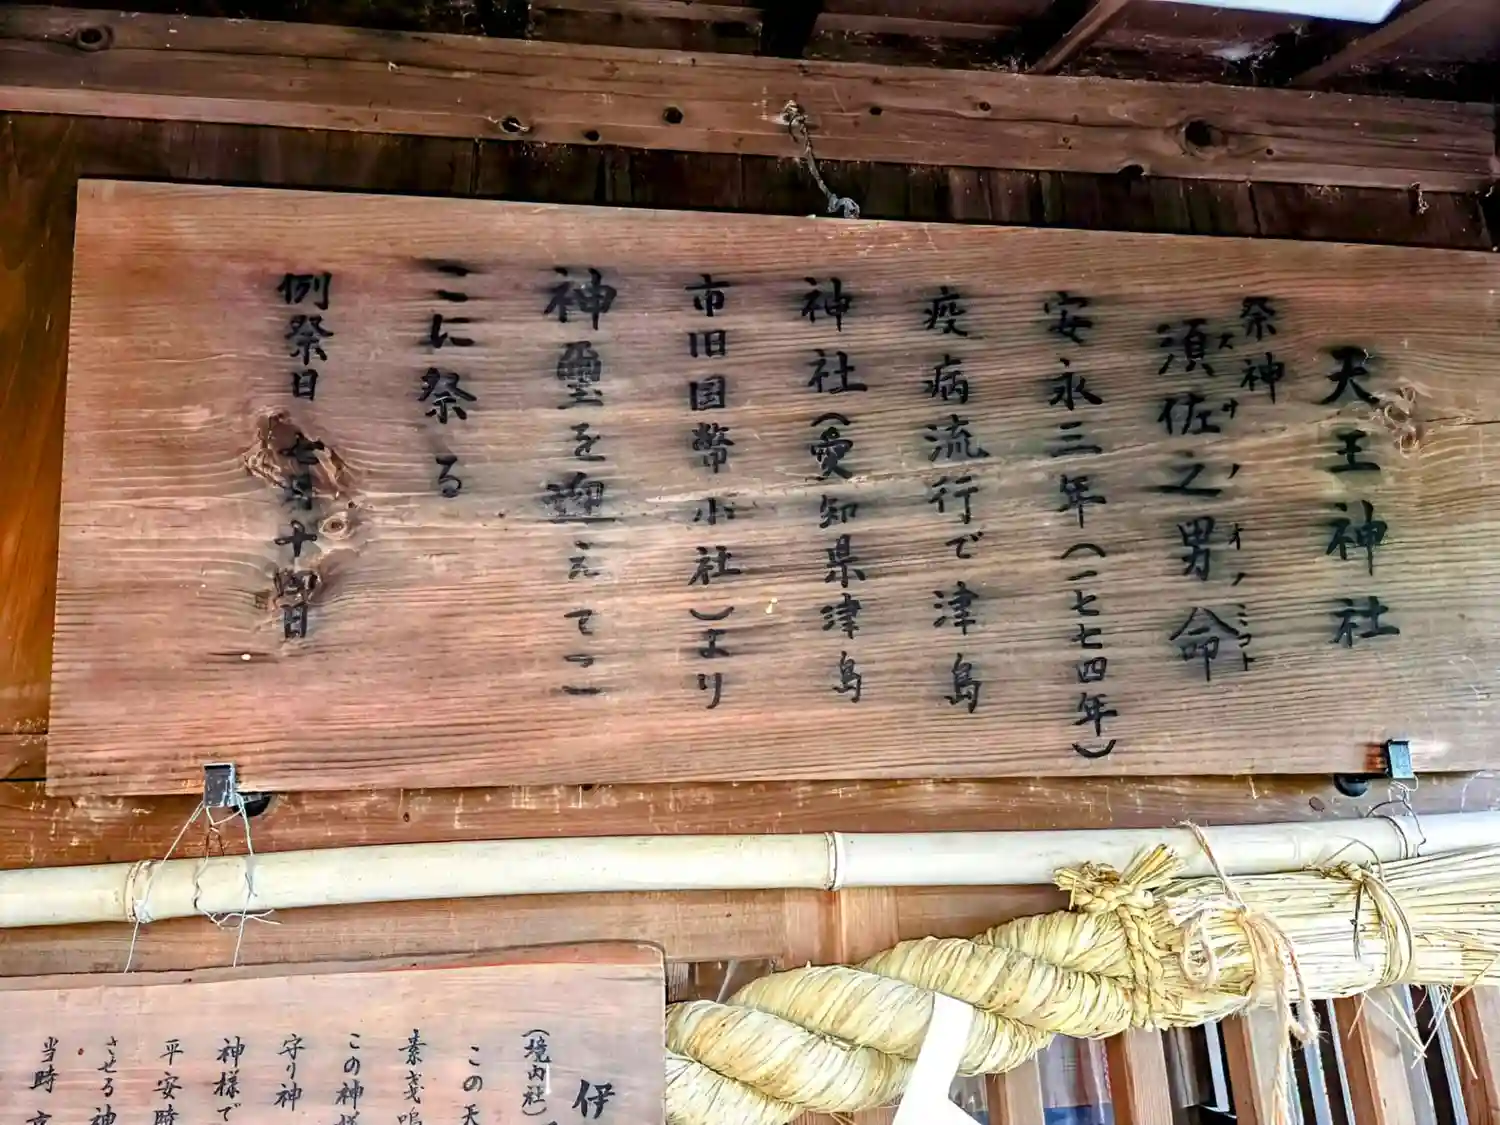 天王神社
祭神
須佐之男命
スサノオノミコト
安永三年(一七七四年)
疫病流行で津島
神社(愛知県津島
市旧国幣小社)より
神璽を迎えて
こに祭る
例祭日 七月十四日
伊
(境内社)
この天
素戔嗚
この神様
守り神
神様で
平安時
させる神
当時